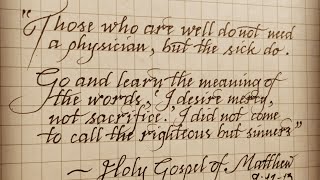 "Those who are well do not need
a physician, but the sick do.
Go and learn the meaning of
the words, 'I desire mercy,
not sacrifice. I did not come
to call the righteous but sinners"
~ Holy Gospel of Matthew